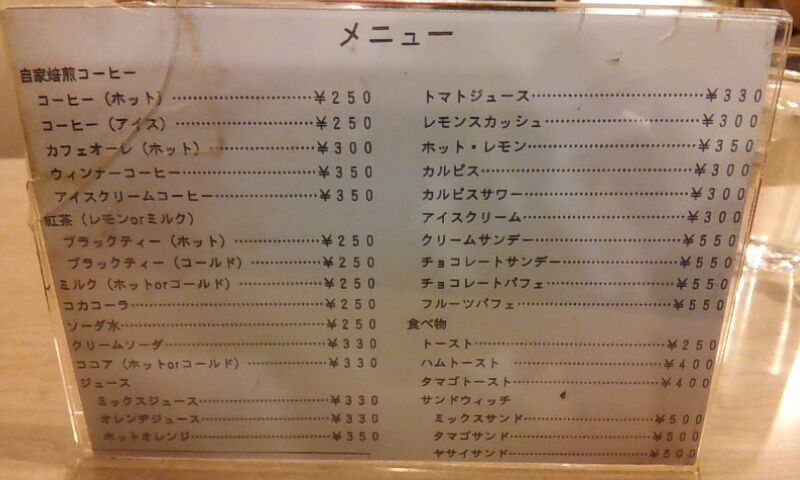 メニュー
自家焙煎コーヒー
コーヒー（ホット）……………………¥250
コーヒー（アイス）……………………¥250
カフェオーレ（ホット）………………¥300
ウィンナーコーヒー……………………¥350
アイスクリームコーヒー………………¥350
紅茶（レモンorミルク）
ブラックティー（ホット）……………¥250
ブラックティー（コールド）…………¥250
ミルク（ホットorコールド）…………¥250
コカコーラ………………………………¥250
ソーダ水…………………………………¥250
クリームソーダ…………………………¥330
ココア（ホットorコールド）…………¥330
ジュース
ミックスジュース………………………¥330
オレンヂジュース………………………¥330
ホットオレンジ…………………………¥350
トマトジュース…………………………¥330
レモンスカッシュ………………………¥300
ホット・レモン…………………………¥350
カルピス…………………………………¥300
カルピスサワー…………………………¥300
アイスクリーム…………………………¥300
クリームサンデー………………………¥550
チョコレートサンデー…………………¥550
チョコレートパフェ……………………¥550
フルーツパフェ…………………………¥550
食べ物
トースト…………………………………¥250
ハムトースト……………………………¥400
タマゴトースト…………………………¥400
サンドウィッチ
ミックスサンド…………………………¥500
タマゴサンド……………………………¥500
ヤサイサンド……………………………¥500